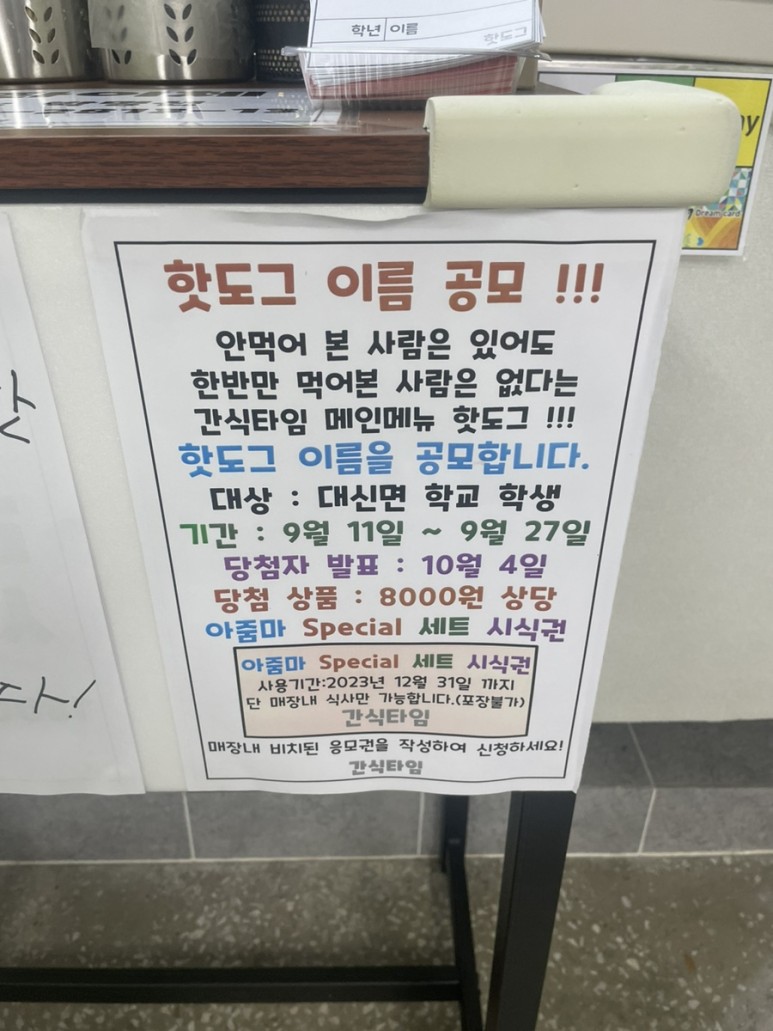 학년 이름
핫도그 이름 공모 !!!
안먹어 본 사람은 있어도
한반만 먹어본 사람은 없다는
간식타임 메인메뉴 핫도그 !!!
핫도그 이름을 공모합니다.
대상 : 대신면 학교 학생
기간 : 9월 11일 ~ 9월 27일
당첨자 발표 : 10월 4일
당첨 상품 : 8000원 상당
아줌마 Special 세트 시식권
아줌마 Special 세트 시식권
사용기간:2023년 12월 31일 까지
단 매장내 식사만 가능합니다.(포장불가)
간식타임
매장내 비치된 응모권을 작성하여 신청하세요!
간식타임
Dream card